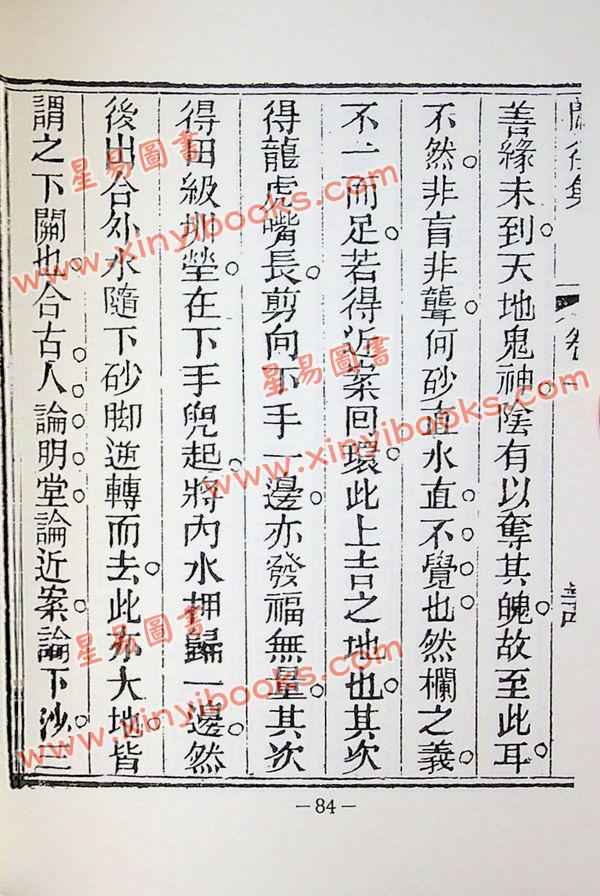 善緣未到天地鬼神陰有以奪其魄故至此耳
不然非盲非聾何砂直水直不覺也然欄之義
不一而足若得近案回環此上吉之地也其次
得龍虎嘴長剪向下手一邊亦發福無量其次
得田級塋在下手兜起將內水押歸一邊然
後出合外水隨下砂脚逆轉而去此亦大地皆
謂之下關也合古人論明堂論近案論下沙三
—84—
星易圖書
www.xinyibooks.com
星易圖書
www.xinyibooks.com
星易圖書
www.xinyibooks.com